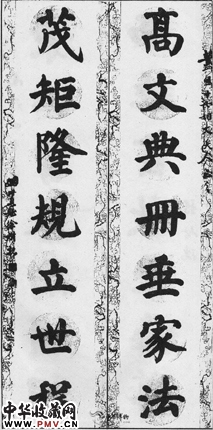 高文典冊垂家法
茂矩隆規立世程
中华收藏网
www.PMV.CN